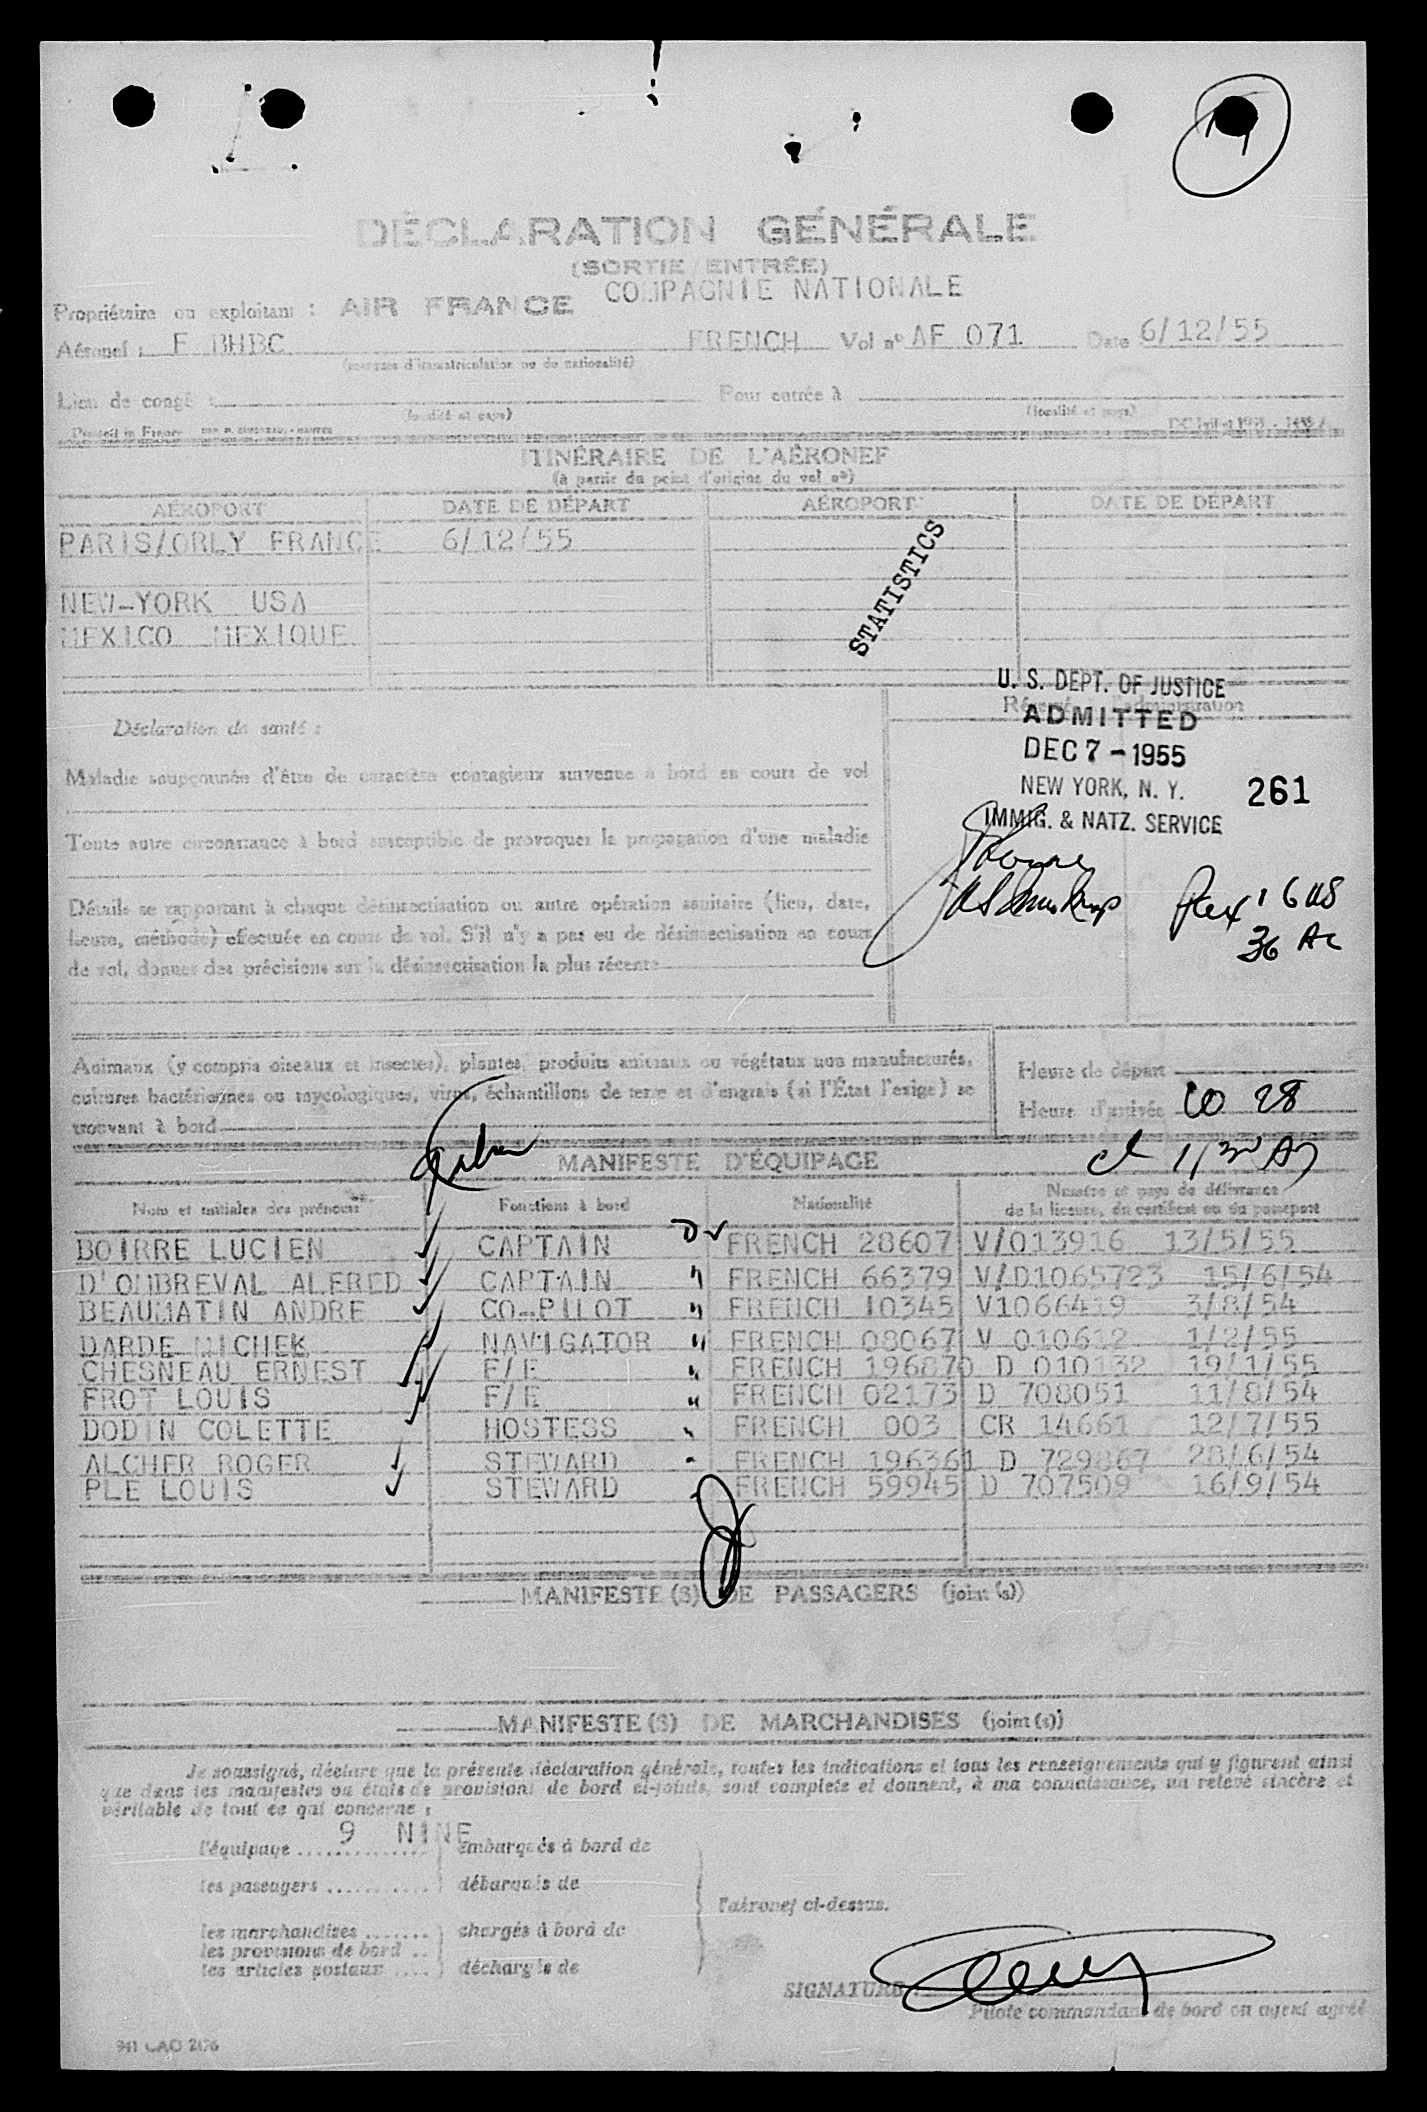 DÉCLARATION GÉNÉRALE
(SORTIE/ENTRÉE)
COMPAGNIE NATIONALE
Propriétaire ou exploitant : AIR FRANCE
Aéronef : F BHBC FRENCH Vol nº AF 071 Date 6/12/55
(marques d'immatriculation ou de nationalité)
Lieu de congé : Pour entrée à
(localité et pays) (localité et pays)
ITINÉRAIRE DE L'AÉRONEF
(à partir du point d'origine du vol nº)
AÉROPORT DATE DE DÉPART AÉROPORT DATE DE DÉPART
PARIS/ORLY FRANCE 6/12/55
STATISTICS
NEW-YORK USA
MEXICO MEXIQUE
U. S. DEPT. OF JUSTICE
ADMITTED
DEC 7 - 1955
NEW YORK, N. Y. 261
IMMIG. & NATZ. SERVICE
Déclaration de santé :
Maladie soupçonnée d'être de caractère contagieux survenue à bord en cours de vol
Toute autre circonstance à bord susceptible de provoquer la propagation d'une maladie
Détails se rapportant à chaque désinsectisation ou autre opération sanitaire (lieu, date,
heure, méthode) effectuée en cours de vol. S'il n'y a pas eu de désinsectisation en cours
de vol, donner des précisions sur la désinsectisation la plus récente
36
Animaux (y compris oiseaux et insectes), plantes, produits animaux ou végétaux non manufacturés,
cultures bactériennes ou mycologiques, virus, échantillons de terre et d'engrais (si l'État l'exige) se
trouvant à bord
Heure de départ
Heure d'arrivée 28
MANIFESTE D'ÉQUIPAGE
Nom et initiales des prénoms Fonctions à bord Nationalité Numéro et pays de délivrance
de la licence, du certificat ou du passeport
BOIRRE LUCIEN CAPTAIN FRENCH 28607 V/013916 13/5/55
D'OMBREVAL ALFRED CAPTAIN " FRENCH 66379 V/D1065723 15/6/54
BEAUMATIN ANDRE CO-PILOT " FRENCH 10345 V1066419 3/8/54
DARDE MICHEK NAVIGATOR " FRENCH 08067 V 010612 1/2/55
CHESNEAU ERNEST F/E " FRENCH 196870 D 010132 19/1/55
FROT LOUIS F/E " FRENCH 02173 D 708051 11/8/54
DODIN COLETTE HOSTESS FRENCH 003 CR 14661 12/7/55
ALCHER ROGER STEWARD FRENCH 196361 D 729867 28/6/54
PLE LOUIS STEWARD FRENCH 59945 D 707509 16/9/54
MANIFESTE (S) DE PASSAGERS (joint (s))
MANIFESTE (S) DE MARCHANDISES (joint (s))
Je soussigné, déclare que la présente déclaration générale, toutes les indications et tous les renseignements qui y figurent ainsi
que dans les manifestes ou états de provisions de bord ci-joints, sont complets et donnent, à ma connaissance, un relevé sincère et
véritable de tout ce qui concerne :
9 NINE
l'équipage embarqués à bord de
les passagers débarqués de
l'aéronef ci-dessus.
les marchandises chargés à bord de
les provisions de bord
les articles postaux déchargés de
SIGNATURE
Pilote commandant de bord ou agent agréé